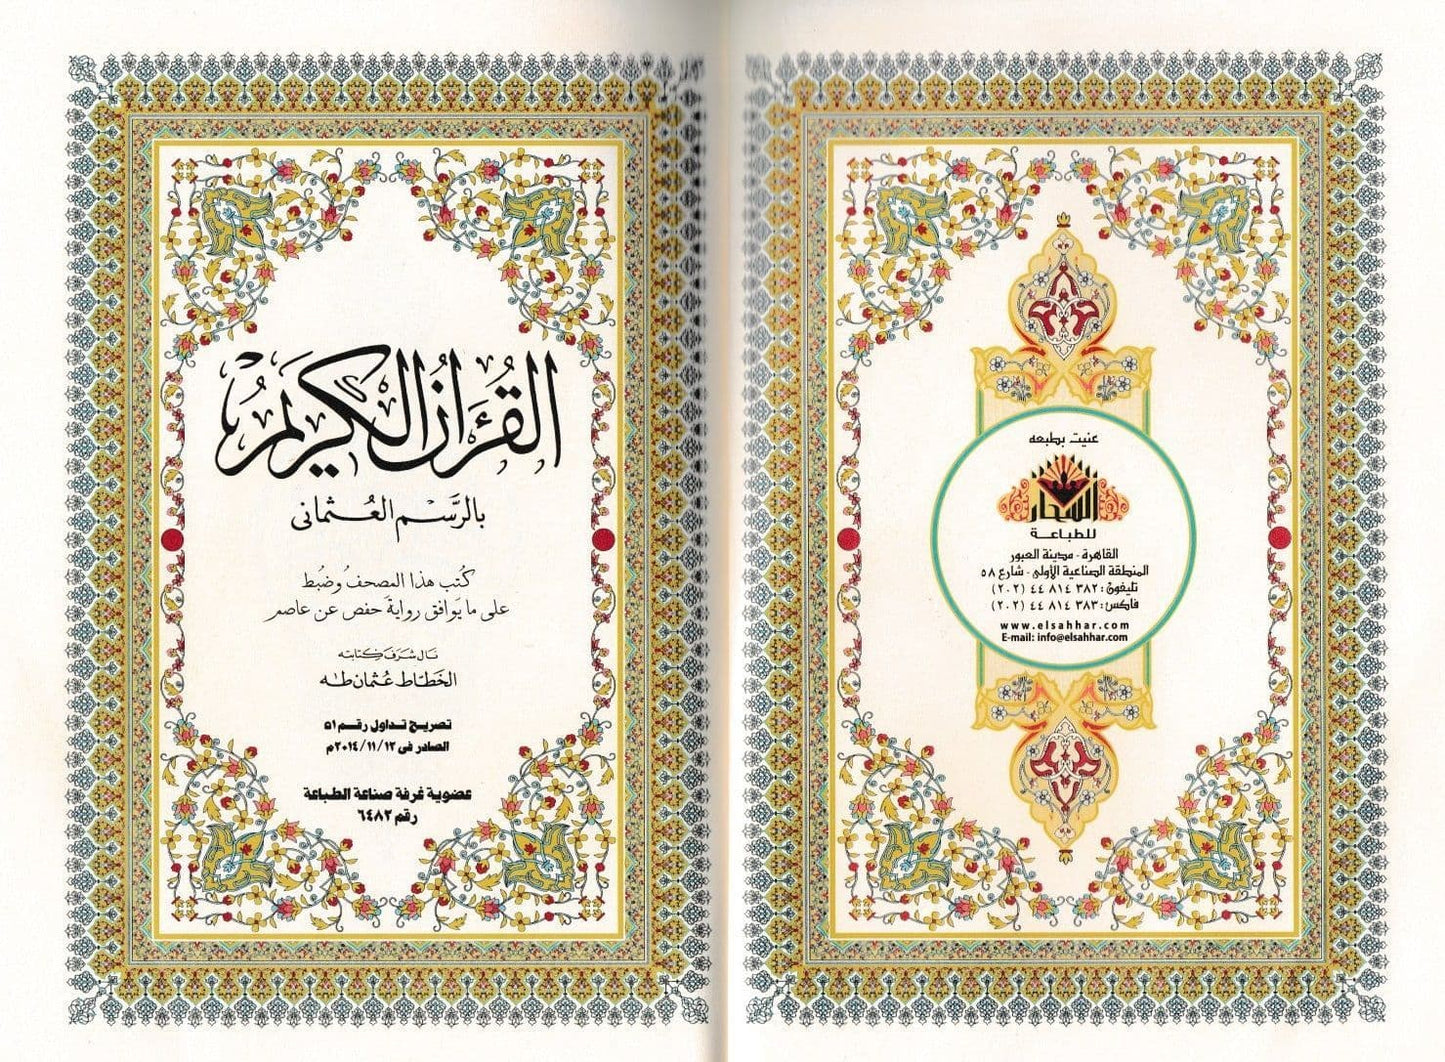 عنيت بطبعه
السحار
للطباعة
القاهرة - مدينة العبور
المنطقة الصناعية الأولى - شارع ٥٨
تليفون : ٣٨٢ ٨١٤ ٤٤ (٢٠٢)
فاكس : ٣٨٣ ٨١٤ ٤٤ (٢٠٢)
www.elsahhar.com
E-mail: info@elsahhar.com
القُرْءَانُ الكَرِيمُ
بالرَّسْم العُثمانى
كُتب هذا المصحفُ وضُبط
على ما يوافق رواية حفص عن عاصم
نال شرف كتابته
الخطاط عُثمان طه
تصريح تداول رقم ٥١
الصادر فى ٢٠١٤/١١/١٢م
عضوية غرفة صناعة الطباعة
رقم ٦٤٨٢